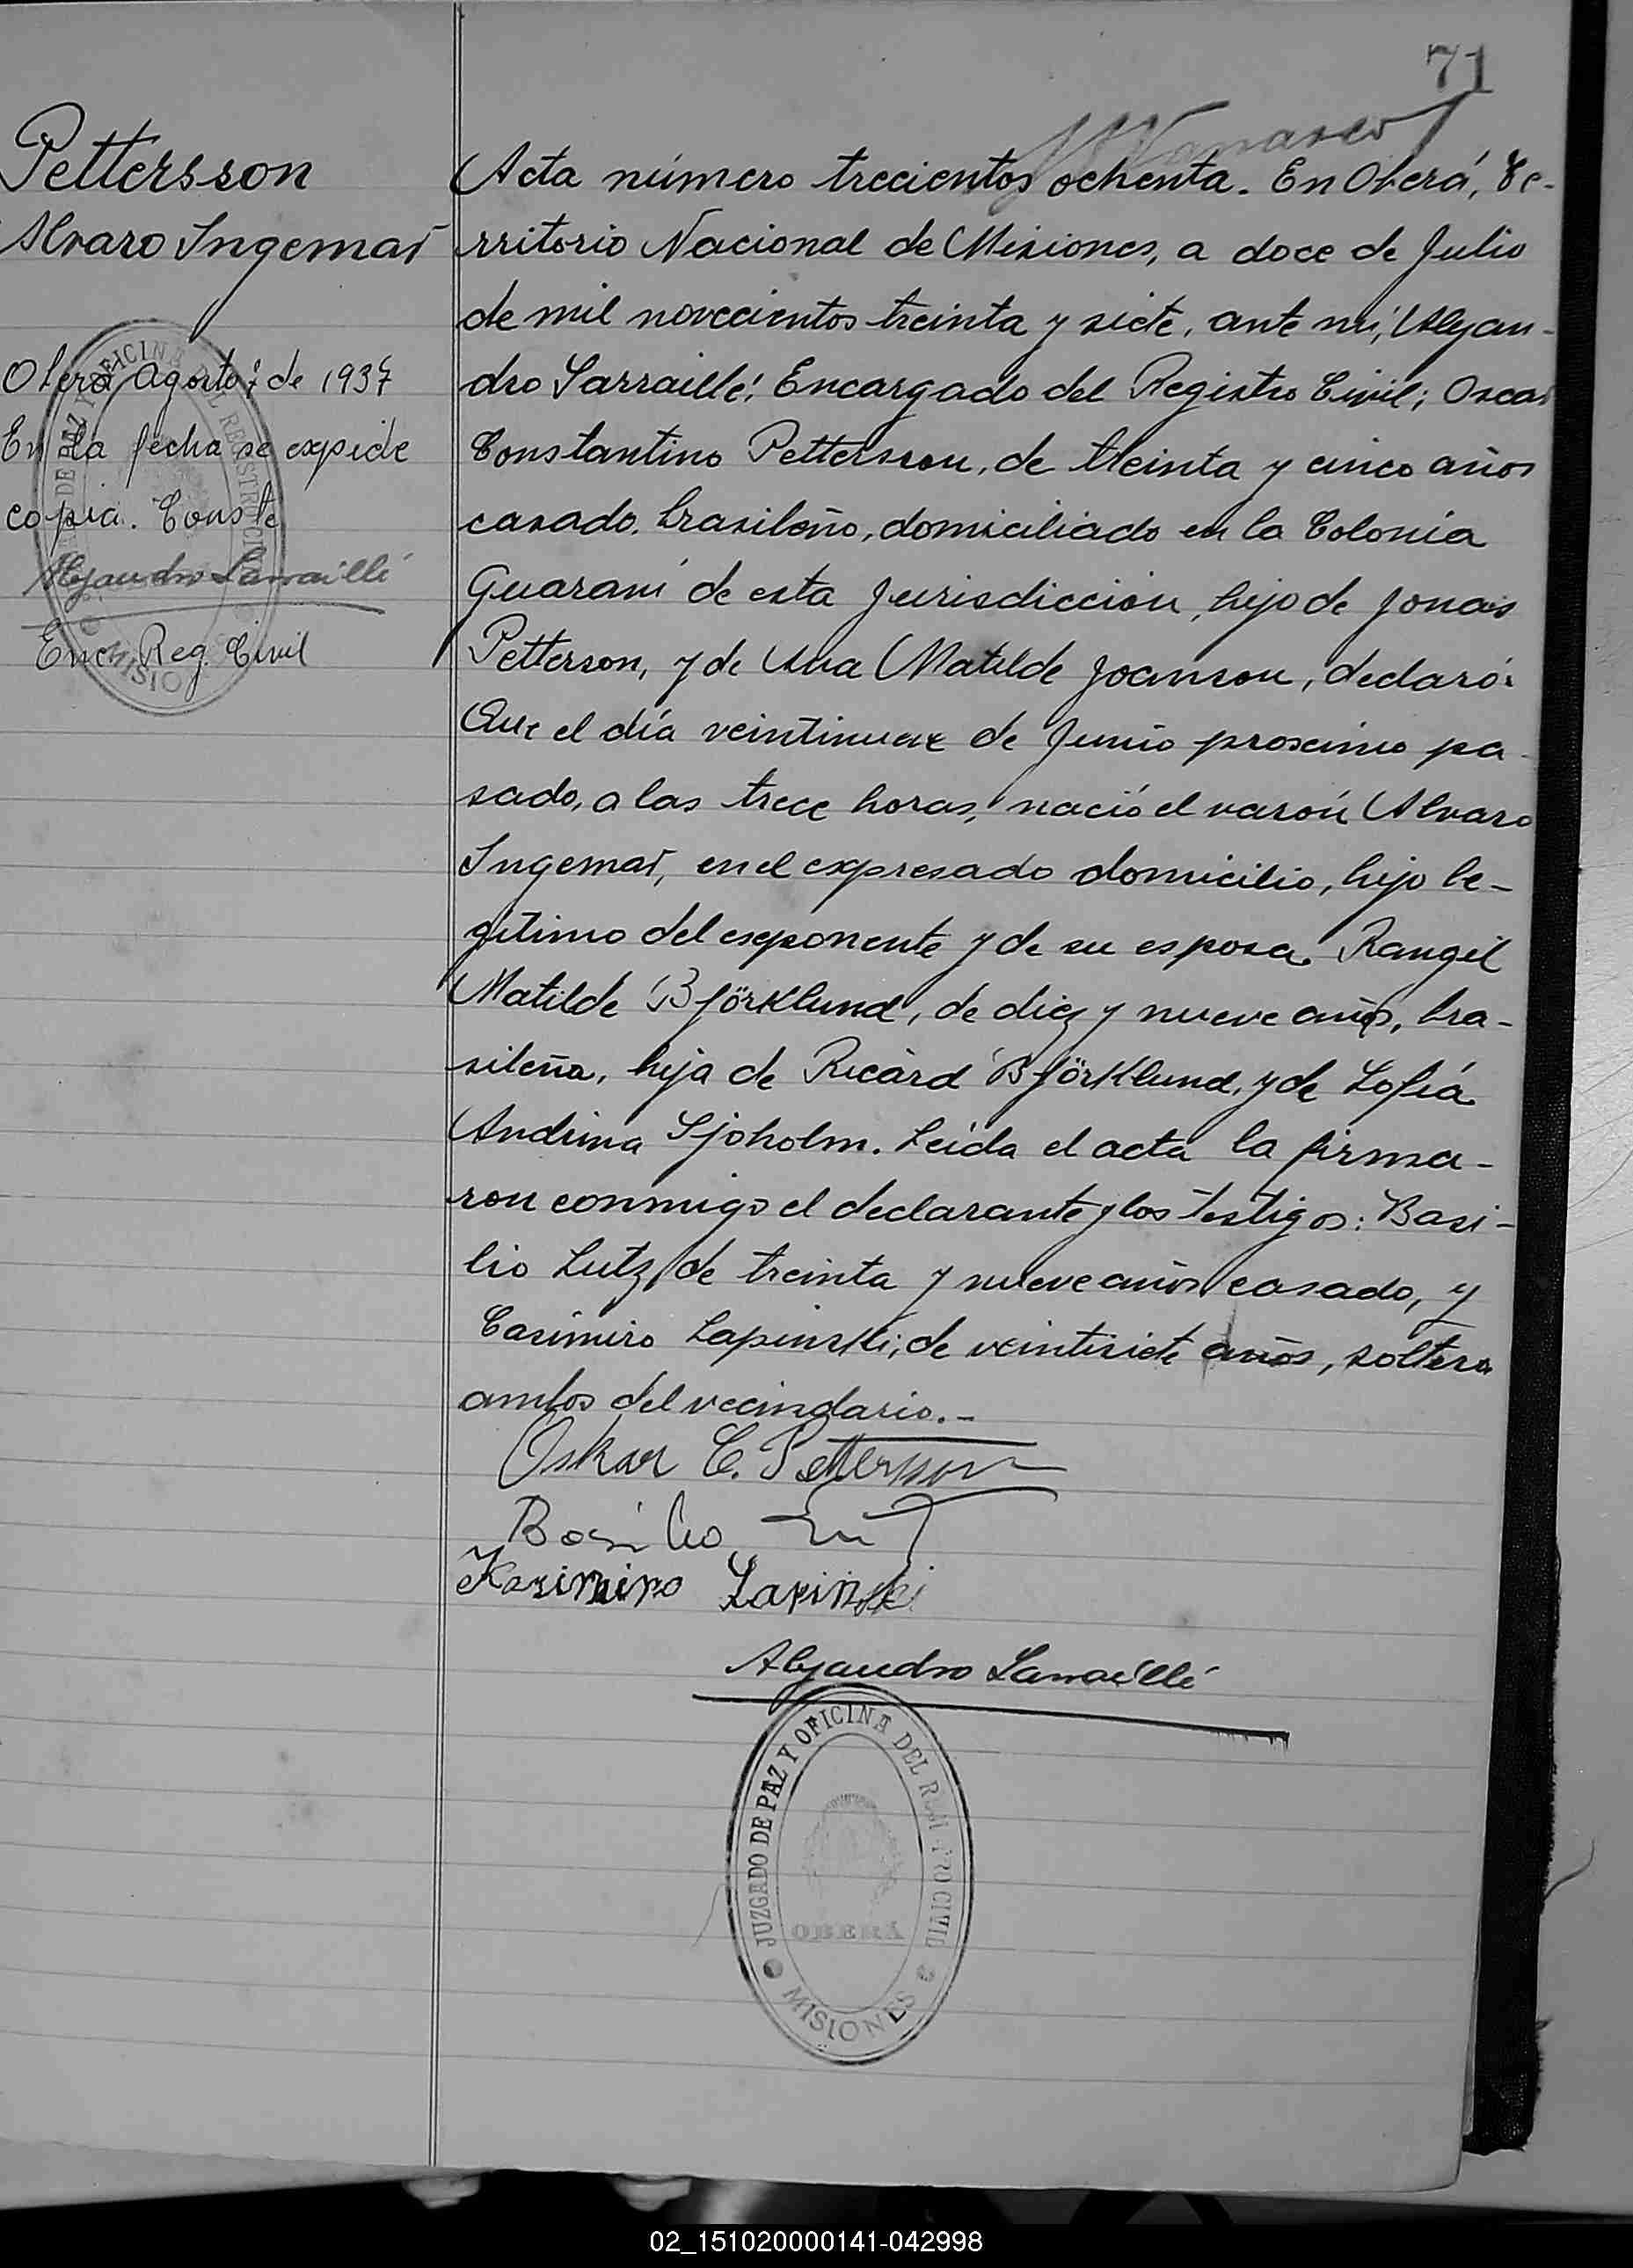 71
Pettersson
Alvaro Ingemar
Oberá Agosto 7 de 1937
En la fecha se expide
copia. Conste
Alejandro Sarraillé
Enc. Reg. Civil
Acta número trecientos ochenta. En Oberá, Te-
rritorio Nacional de Misiones, a doce de Julio
de mil novecientos treinta y siete, ante mi, Alejan-
dro Sarraillé, Encargado del Registro Civil; Oscar
Constantino Pettersson, de treinta y cinco años
casado, brasileño, domiciliado en la Colonia
Guaraní de esta Jurisdicción, hijo de Jonas
Petterson, y de Ana Matilde Joanson, declaró:
Que el día veintinueve de Junio proximo pa-
sado, a las trece horas, nació el varón Alvaro
Ingemar, en el expresado domicilio, hijo le-
gitimo del exponente y de su esposa Rangil
Matilde Björklund, de diez y nueve años, bra-
sileña, hija de Ricard Björklund, y de Sofía
Andrina Sjoholm. Leida el acta la firma-
ron conmigo el declarante y los testigos: Basi-
lio Lutz, de treinta y nueve años casado, y
Casimiro Lapinski, de veintisiete años, soltero
ambos del vecindario.-
Oskar C. Pettersson
Basilio Lutz
Kasimiro Lapinski
Alejandro Sarraillé
JUZGADO DE PAZ Y OFICINA DEL REGISTRO CIVIL
OBERÁ
MISIONES
02_151020000141-042998